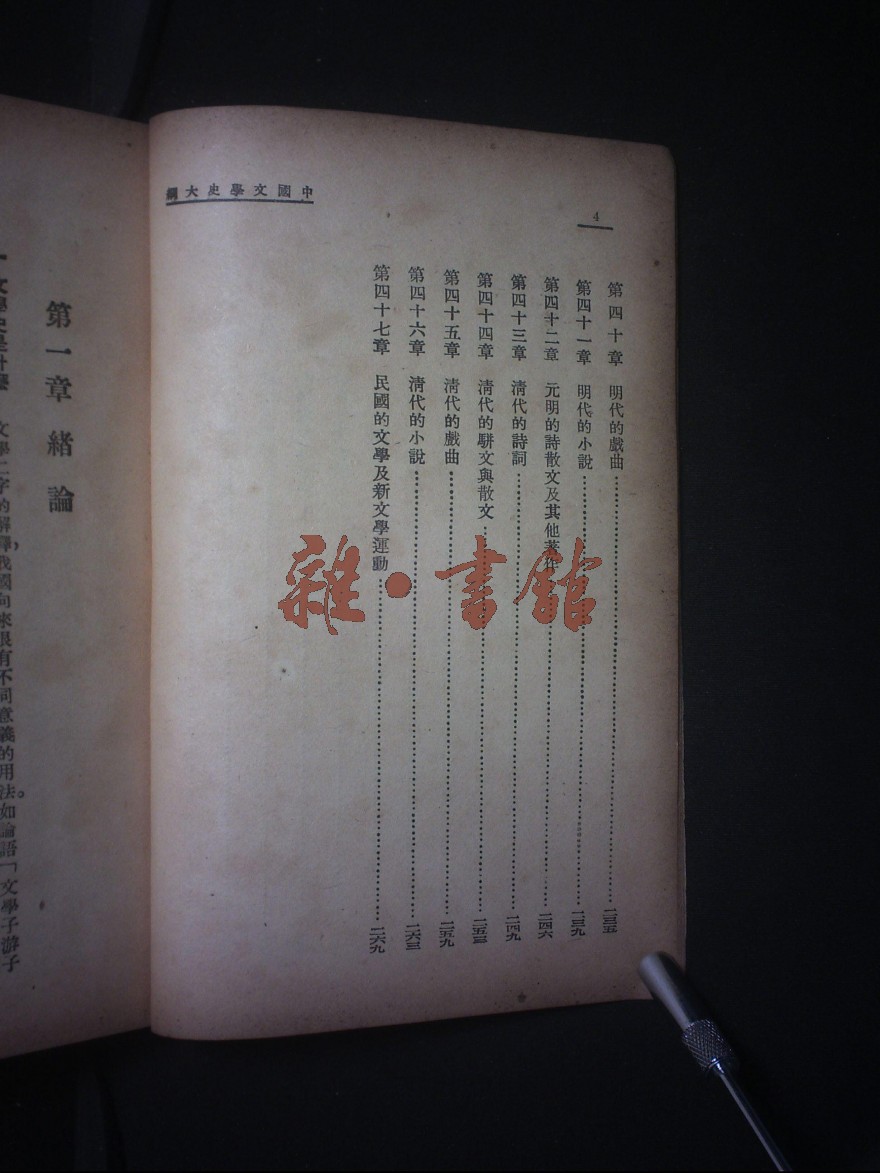 中國文學史大綱
4
第四十章 明代的戲曲……二三五
第四十一章 明代的小說……二三九
第四十二章 元明的詩散文及其他著作……二四六
第四十三章 清代的詩詞……二四九
第四十四章 清代的駢文與散文……二五三
第四十五章 清代的戲曲……二五九
第四十六章 清代的小說……二六三
第四十七章 民國的文學及新文學運動……二六九
雜·書館
第一章 緒論
一 文學史是什麼 文學二字的解釋，我國向來很有不同意義的用法。如論語「文學子游子